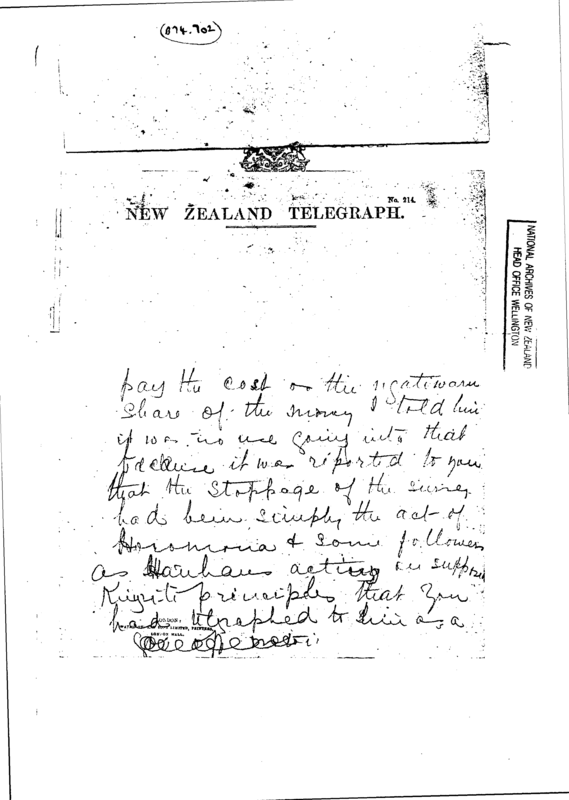 (874.702)
No. 214.
NEW ZEALAND TELEGRAPH.
NATIONAL ARCHIVES OF NEW ZEALAND
HEAD OFFICE WELLINGTON
pay the cost on the
share of the money I told him
it was no use going into that
because it was reported to you
that the stoppage of the survey
had been simply the act of
& some followers
as Hauhaus acting on
principles that you
had telegraphed to him as a